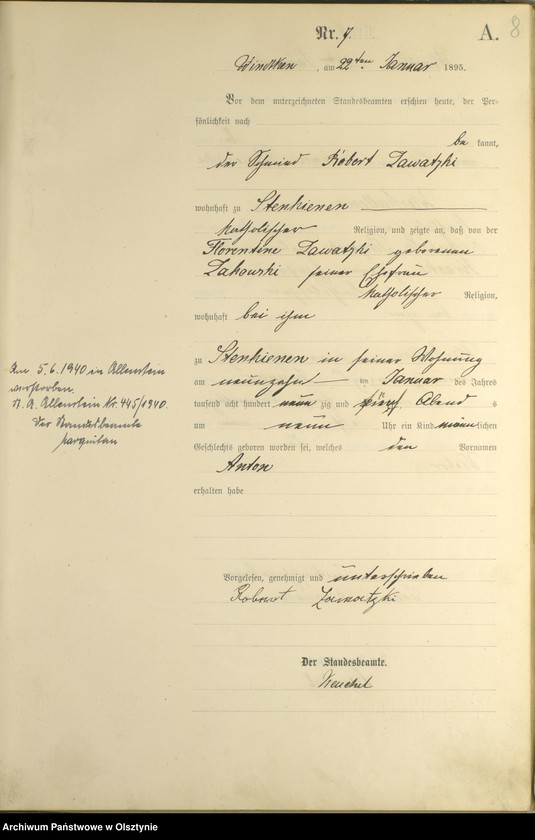 8
Nr. 7. A.
Windtken, am 22ten Januar 1895.
Vor dem unterzeichneten Standesbeamten erschien heute, der Per-
sönlichkeit nach
be kannt,
der Schmied Robert Zawatzki
wohnhaft zu Stenkienen
katholischer Religion, und zeigte an, daß von der
Florentine Zawatzki geborenen
Zakowski seiner Ehefrau
katholischer Religion,
wohnhaft bei ihm
zu Stenkienen in seiner Wohnung
am neunzehnten Januar des Jahres
tausend acht hundert neun zig und fünf Abend s
um neun Uhr ein Kind männlichen
Geschlechts geboren worden sei, welches den Vornamen
Anton
erhalten habe
Vorgelesen, genehmigt und unterschrieben
Robert Zawatzki
Der Standesbeamte.
Am 5.6.1940 in Allenstein
verstorben.
St. A. Allenstein Nr. 445/1940.
Der Standesbeamte
Archiwum Państwowe w Olsztynie